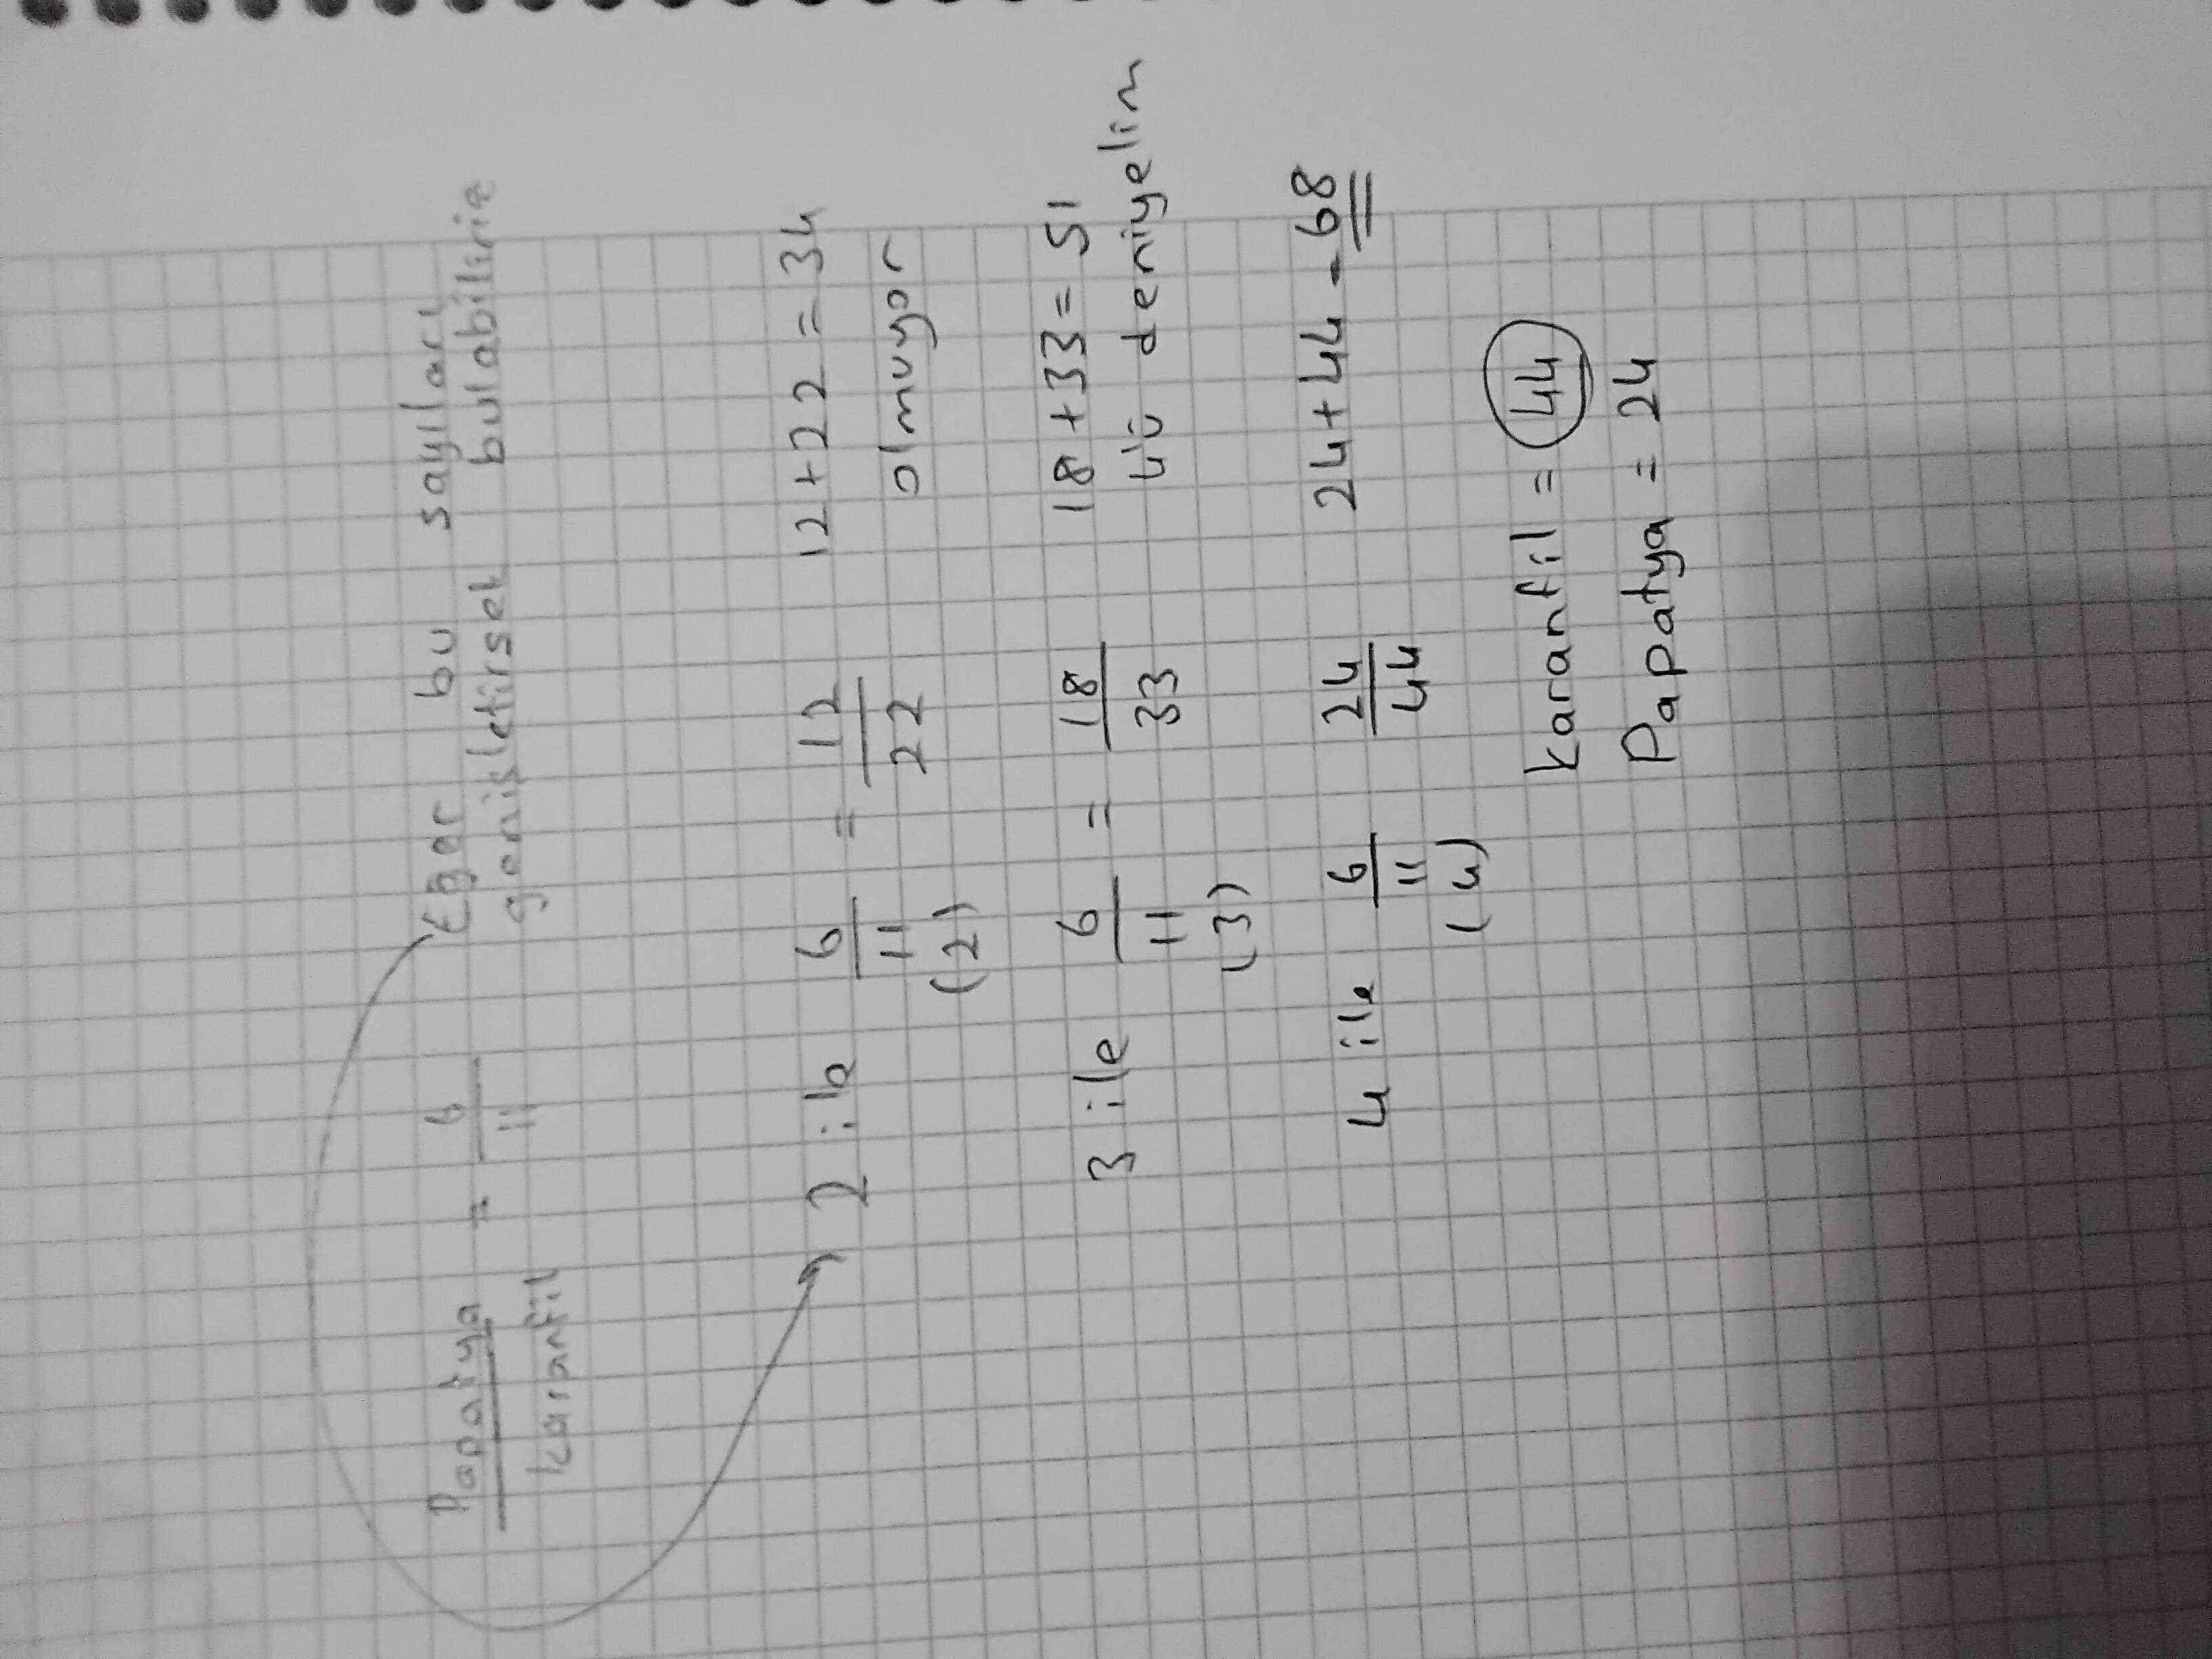 Papatya = 6 Eğer bu sayıları
karanfil 11 genişletirsek bulabiliriz
2 ile 6 = 12 12+22=34
11 22 olmuyor
(2)
3 ile 6 = 18 18+33=51
11 33 4'ü deniyelim
(3)
4 ile 6 24 24+44=68
11 44
(4)
karanfil = 44
Papatya = 24